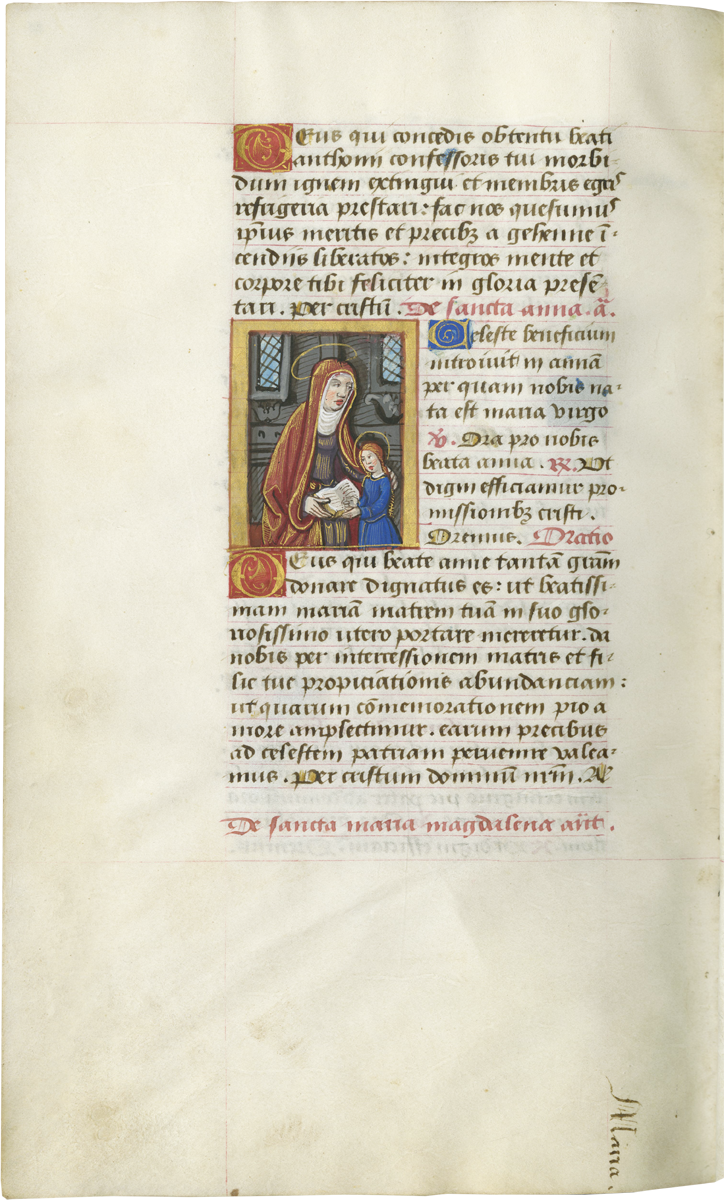 Deus qui concedis obtentu beati
anthonii confessoris tui morbi-
dum ignem extingui et membris egris
refrigeria prestari: fac nos quesumus
ipsius meritis et precibz a gehenne ī-
cendiis liberatos: integros mente et
corpore tibi feliciter in gloria presē-
tari. Per cristū. De sancta anna. a̅.
Celeste beneficium
introivit in annā
per quam nobis na-
ta est maria virgo
℣. Ora pro nobis
beata anna. ℟. Ut
digni efficiamur pro-
missionibz cristi.
Oremus. Oratio
Deus qui beate anne tantā grām
donare dignatus es: ut beatissi-
mam mariā matrem tuā in suo glo-
riosissimo utero portare mereretur. da
nobis per intercessionem matris et fi-
lie tue propiciationis abundanciam:
ut quarum cōmemorationem pio a
more amplectimur. earum precibus
ad celestem patriam pervenire valea-
mus. Per cristum dominū nrm̄. A
De sancta maria magdalena ant̄.
Maria.